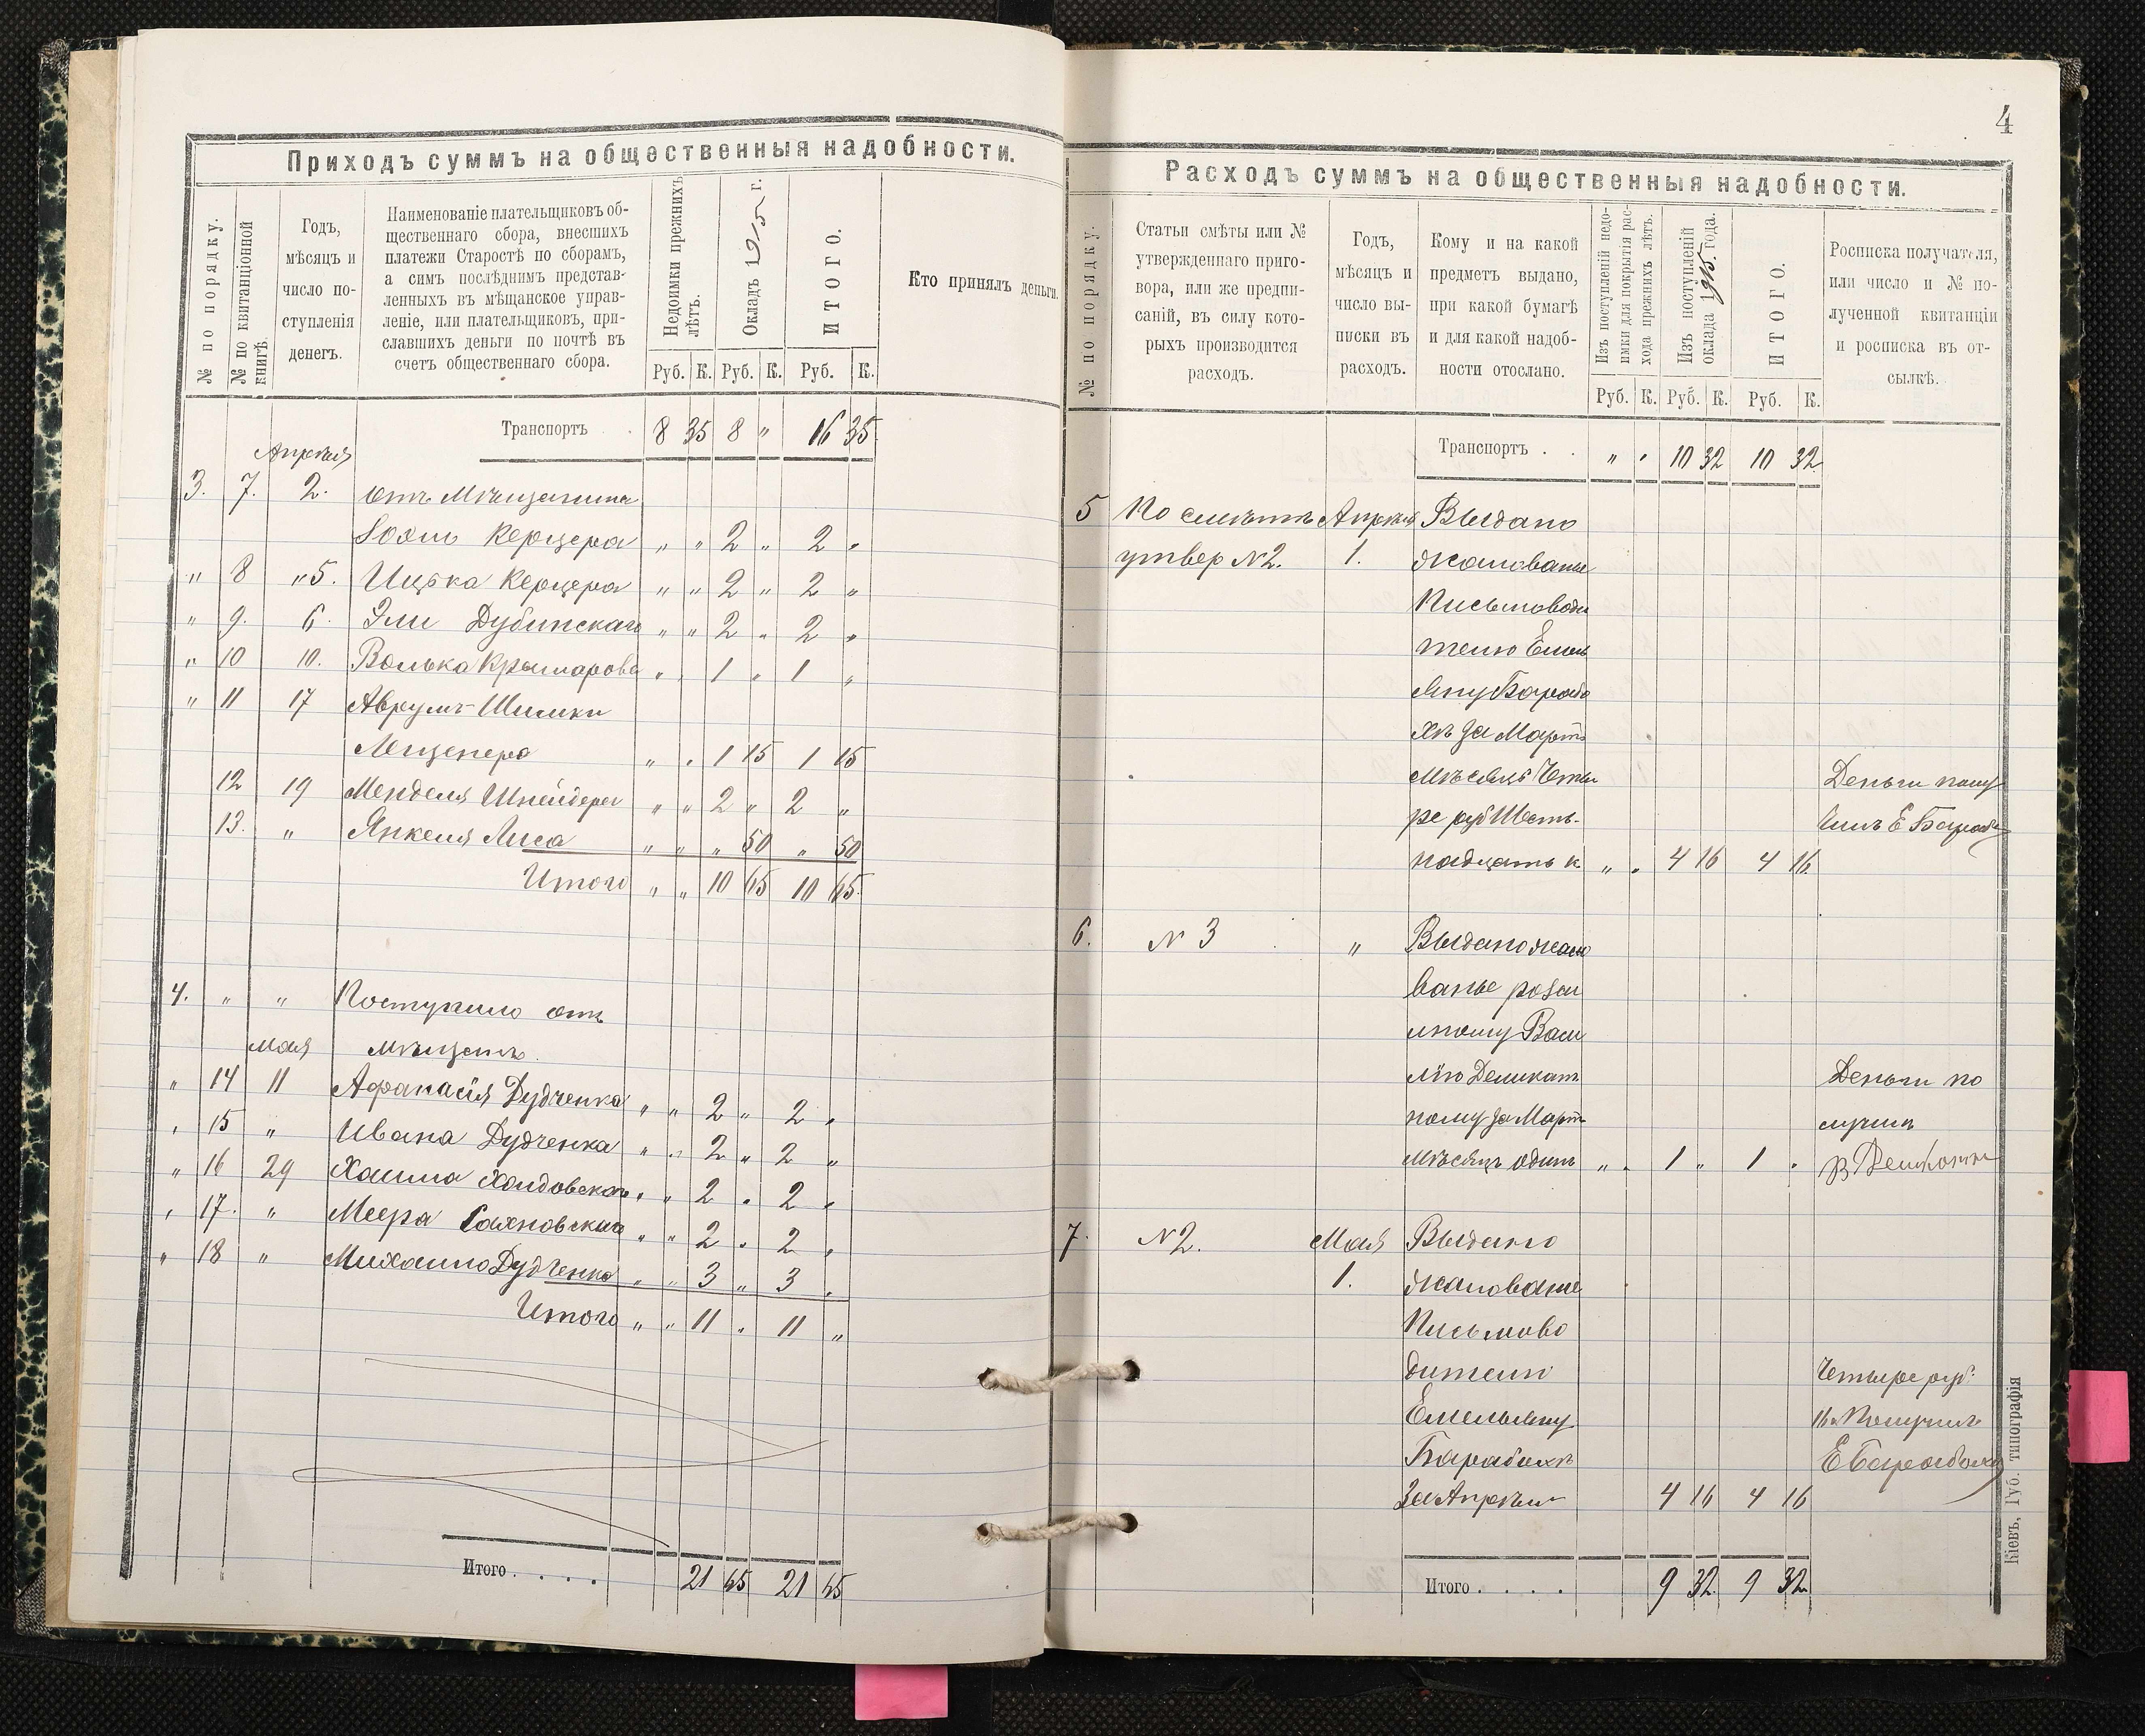 4
Приходъ суммъ на общественныя надобности.
№ по порядку.
№ по квитанціонной книгѣ.
Годъ,
мѣсяцъ и
число по-
ступленія
денегъ.
Наименованіе плательщиковъ об-
щественнаго сбора, внесшихъ
платежи Старостѣ по сборамъ,
а симъ послѣднимъ представ-
ленныхъ въ мѣщанское управ-
леніе, или плательщиковъ, при-
славшихъ деньги по почтѣ въ
счетъ общественнаго сбора.
Недоимки прежнихъ
лѣтъ.
Окладъ 1915 г.
ИТОГО.
Кто принялъ деньги.
Руб. К. Руб. К. Руб. К.
Транспортъ . 8 35 8 „ 16 35
Апрѣля
3. 7. 2. Отъ Мѣщанина
Керцера „ „ 2 „ 2 „
„ 8 „5. Ицька Керцера „ „ 2 „ 2 „
„ 9. 6. Эли Дубинскаго „ „ 2 „ 2 „
„ 10 10. Волька Крамарова „ „ 1 „ 1 „
„ 11 17 Аврумъ-Шимки
Мещенера „ „ 1 15 1 15
12 19 Менделя Шнейдера „ „ 2 „ 2 „
13. „ Янкеля Лиса „ „ „ 50 „ 50
Итого „ „ 10 65 10 65.
4. „ „ Поступило отъ
Мая мѣщанъ.
„ 14 11 Афанасія Дудченка „ „ 2 „ 2 „
„ 15 „ Ивана Дудченка „ „ 2 „ 2 „
„ 16 29 Хаима „ „ 2 „ 2 „
„ 17. „ Меера „ „ 2 „ 2 „
„ 18 „ Михаила Дудченка „ „ 3 „ 3 „
Итого „ „ 11 „ 11 „
Итого . . . . 21 65 21 65
Расходъ суммъ на общественныя надобности.
№ по порядку.
Статьи смѣты или №
утвержденнаго приго-
вора, или же предпи-
саній, въ силу кото-
рыхъ производится
расходъ.
Годъ,
мѣсяцъ и
число вы-
писки въ
расходъ.
Кому и на какой
предметъ выдано,
при какой бумагѣ
и для какой надоб-
ности отослано.
Изъ поступленій недо-
имки для покрытія рас-
хода прежнихъ лѣтъ.
Изъ поступленій
оклада 1915 года.
ИТОГО.
Росписка получателя,
или число и № по-
лученной квитанціи
и росписка въ от-
сылкѣ.
Руб. К. Руб. К. Руб. К.
Транспортъ . . „ „ 10 32 10 32
5 По смѣтѣ Апрѣля Выдано
утвер №2. 1. жалованье
Письмоводи
телю Емель
яну Бараба
хѣ за Мартъ
мѣсяцъ Четы Деньги полу
ре руб Шест- чилъ Е Бараба
надцать к „ „ 4 16 4 16
6. № 3 „ Выдано жало
ванье розсы
лному Васи
лію Деликат Деньги по
ному за Мартъ лучилъ
мѣсяцъ одинъ „ „ 1 „ 1 „
7. №2. Мая Выдано
1. жалованье
Письмово
дителю Четыре руб.
Емельяну 16к Получилъ
Барабахѣ Е Барабаха
за Апрѣль 4 16 4 16
Итого . . . . 9 32 9 32
Кіевъ, Губ. типографія